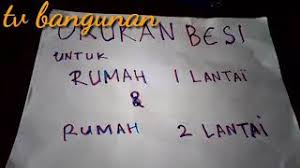 tv bangunan
UKURAN BESI
UNTUK
RUMAH 1 LANTAI
&
RUMAH 2 LANTAI